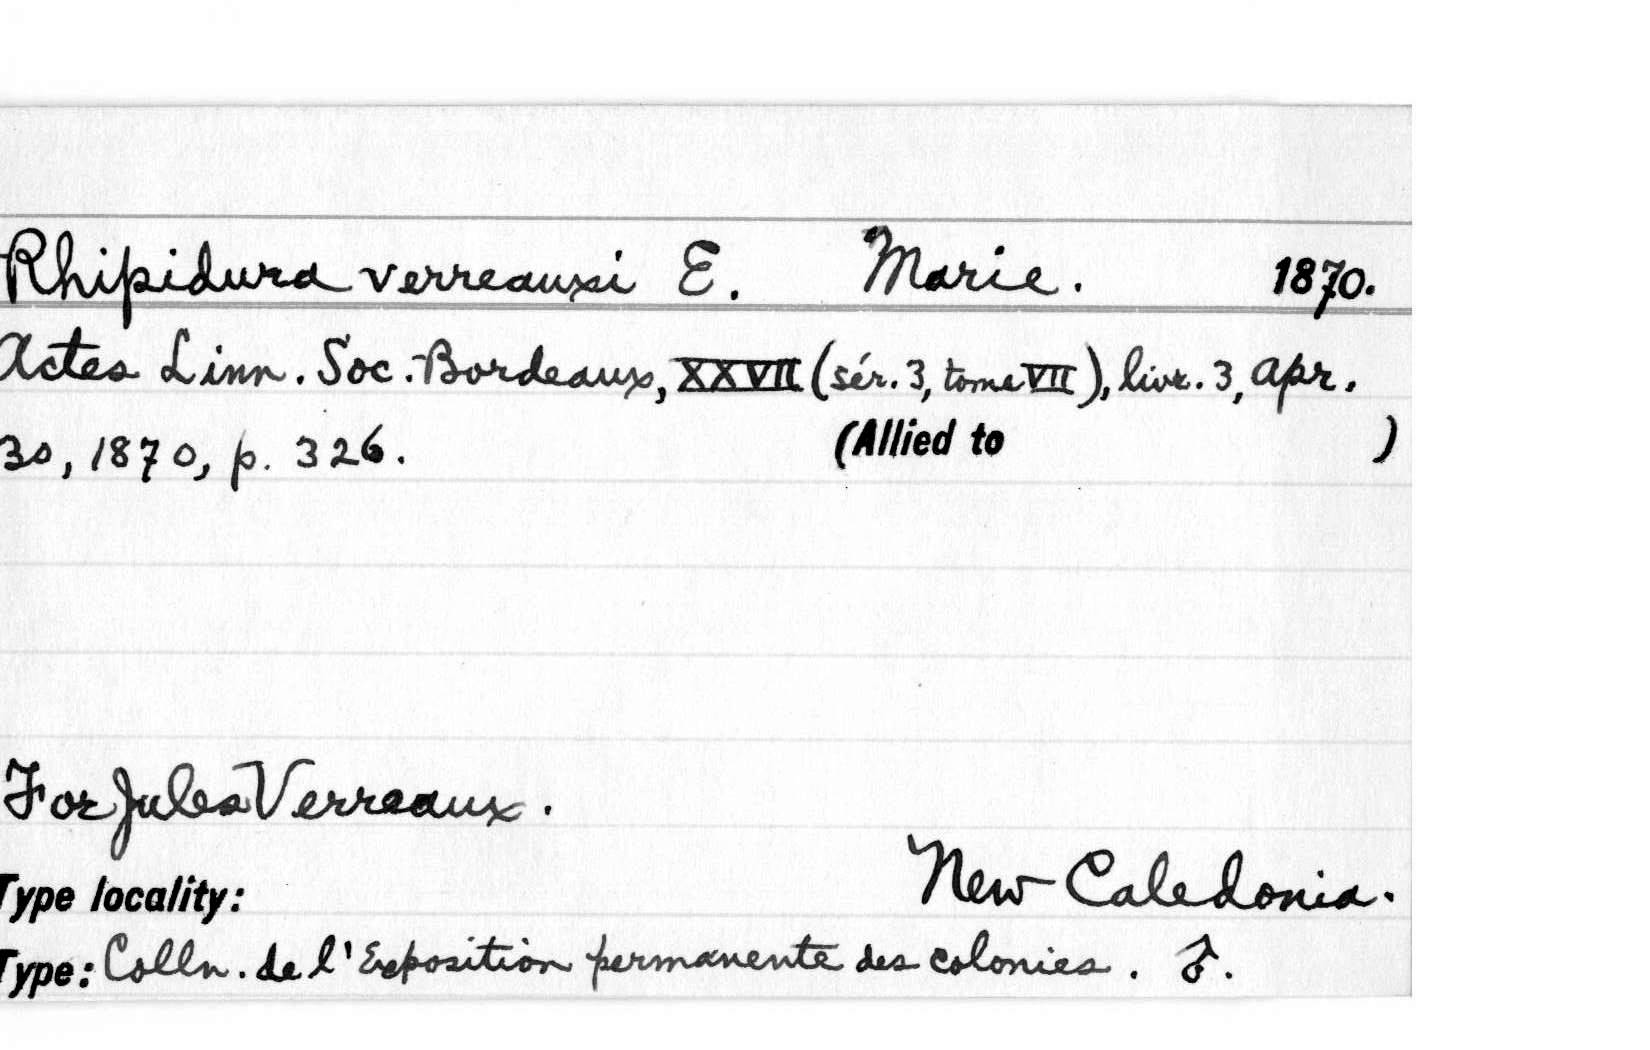 Rhipidura verreauxi E. Marie. 1870.
Actes Linn. Soc. Bordeaux, XXVII (sér. 3, tome VII), livr. 3, Apr.
30, 1870, p. 326. (Allied to )
For Jules Verreaux.
New Caledonia.
Type locality:
Type: Colln. de l'Exposition permanente des colonies. ♂.